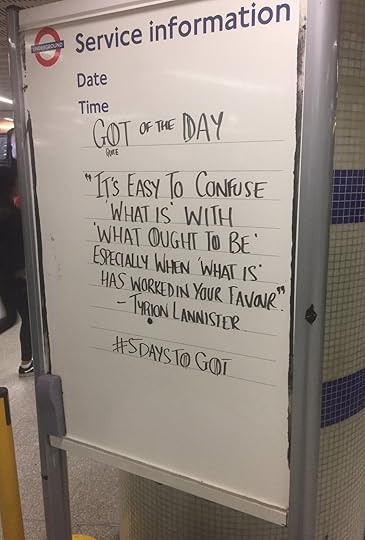 UNDERGROUND
Service information
Date
Time
GOT OF THE DAY
QUOTE
"IT'S EASY TO CONFUSE
'WHAT IS' WITH
'WHAT OUGHT TO BE'
ESPECIALLY WHEN 'WHAT IS'
HAS WORKED IN YOUR FAVOUR."
- TYRION LANNISTER
#5DAYSTOGOT